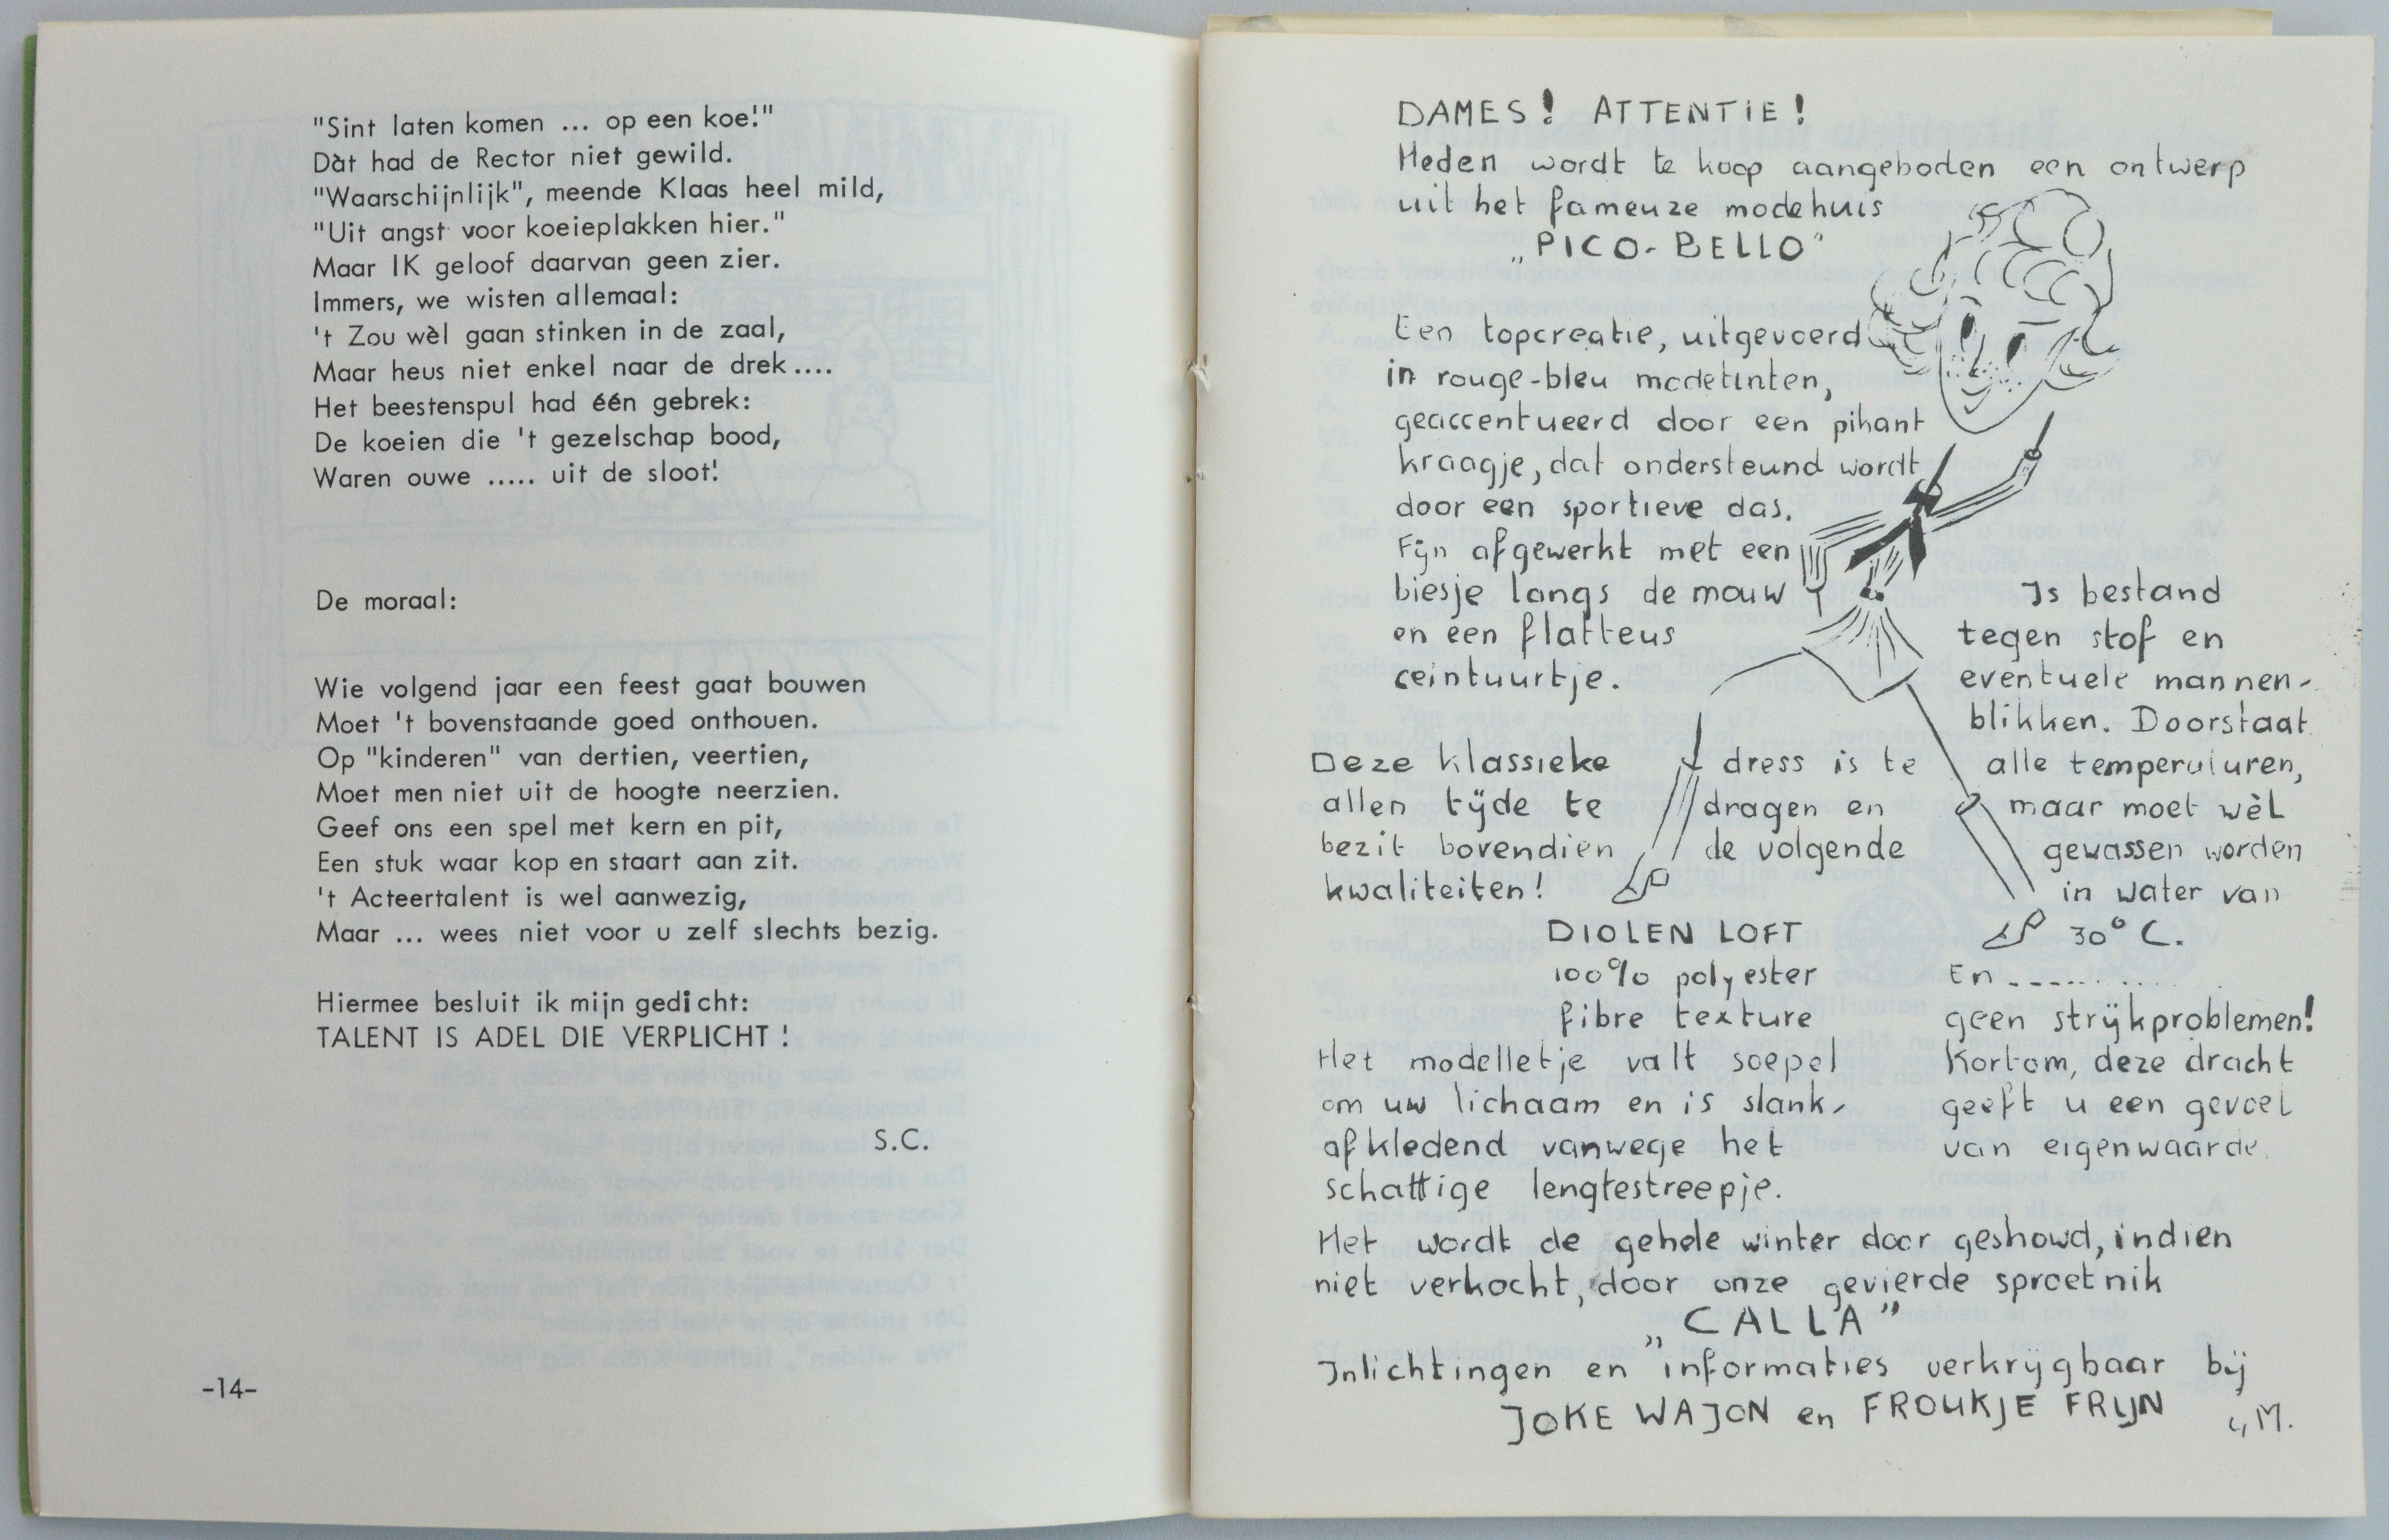 "Sint laten komen ... op een koe!"
Dàt had de Rector niet gewild.
"Waarschijnlijk", meende Klaas heel mild,
"Uit angst voor koeieplakken hier."
Maar IK geloof daarvan geen zier.
Immers, we wisten allemaal:
't Zou wèl gaan stinken in de zaal,
Maar heus niet enkel naar de drek....
Het beestenspul had één gebrek:
De koeien die 't gezelschap bood,
Waren ouwe ..... uit de sloot!
De moraal:
Wie volgend jaar een feest gaat bouwen
Moet 't bovenstaande goed onthouen.
Op "kinderen" van dertien, veertien,
Moet men niet uit de hoogte neerzien.
Geef ons een spel met kern en pit,
Een stuk waar kop en staart aan zit.
't Acteertalent is wel aanwezig,
Maar ... wees niet voor u zelf slechts bezig.
Hiermee besluit ik mijn gedicht:
TALENT IS ADEL DIE VERPLICHT !
S.C.
-14-
DAMES! ATTENTIE!
Heden wordt te koop aangeboden een ontwerp
uit het fameuze modehuis
„PICO-BELLO"
Een topcreatie, uitgevoerd
in rouge-bleu modetinten,
geaccentueerd door een pikant
kraagje, dat ondersteund wordt
door een sportieve das.
Fijn afgewerkt met een
biesje langs de mouw
en een flatteus
ceintuurtje.
Deze klassieke dress is te
allen tijde te dragen en
bezit bovendien de volgende
kwaliteiten!
DIOLEN LOFT
100% polyester
fibre texture
Het modelletje valt soepel
om uw lichaam en is slank-
afkledend vanwege het
schattige lengtestreepje.
Is bestand
tegen stof en
eventuele mannen-
blikken. Doorstaat
alle temperaturen,
maar moet wèl
gewassen worden
in water van
30° C.
En ..........
geen strijkproblemen!
Kortom, deze dracht
geeft u een gevoel
van eigenwaarde.
Het wordt de gehele winter door geshowd, indien
niet verkocht, door onze gevierde sproetnik
„CALLA"
Inlichtingen en "informaties verkrijgbaar bij
JOKE WAJON en FROUKJE FRIJN
M.